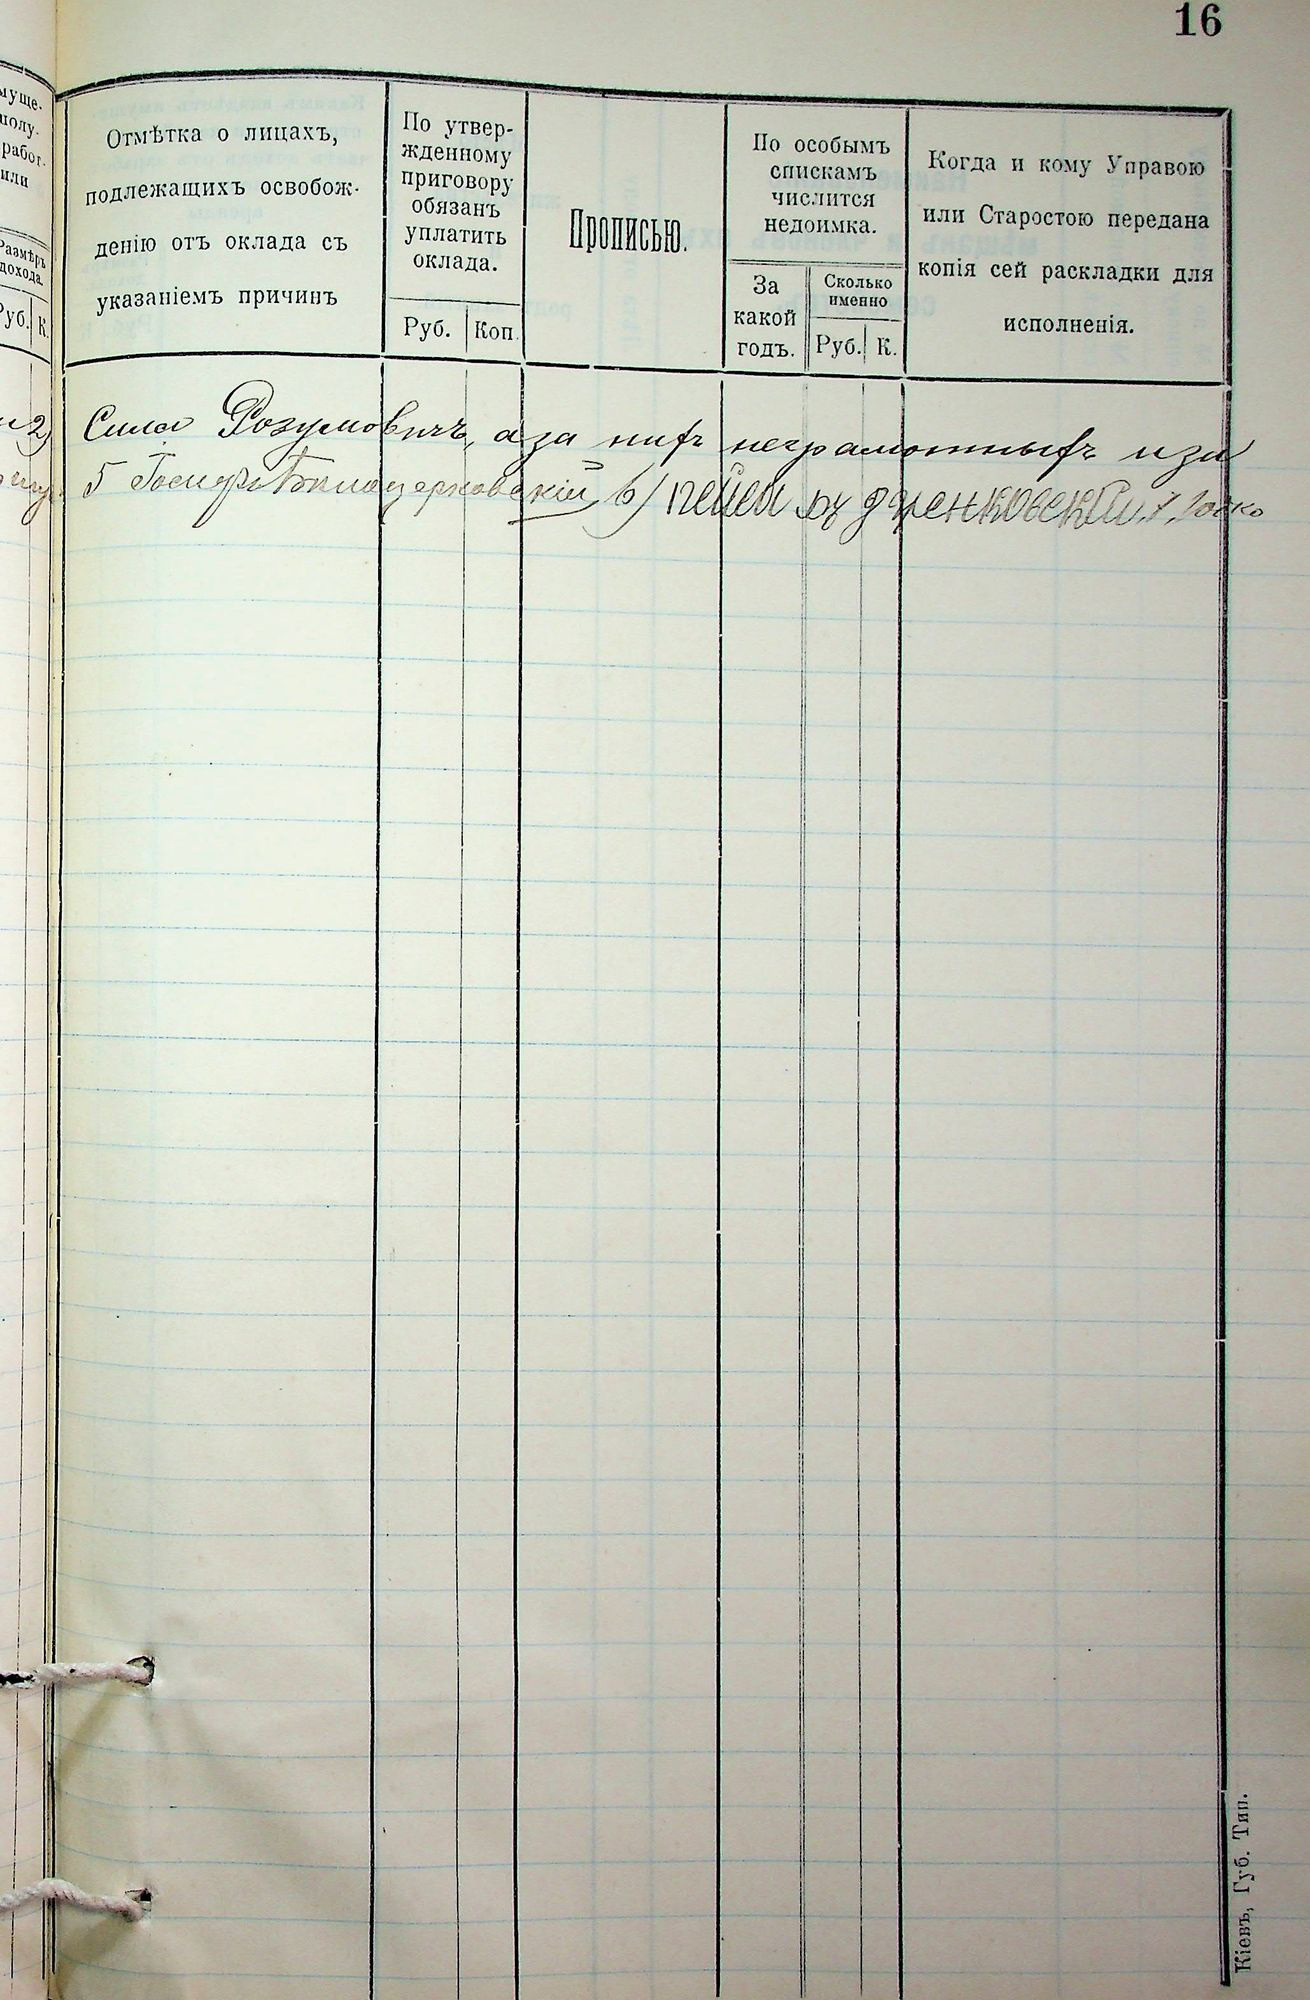 16
муще-
полу-
работ.
или
Размѣръ
дохода.
Руб. К.
Отмѣтка о лицахъ,
подлежащихъ освобож-
денію отъ оклада съ
указаніемъ причинъ
По утвер-
жденному
приговору
обязанъ
уплатить
оклада.
Руб. Коп.
Прописью.
По особымъ
спискамъ
числится
недоимка.
За
какой
годъ.
Сколько
именно
Руб. К.
Когда и кому Управою
или Старостою передана
копія сей раскладки для
исполненія.
Сила Розумовичъ, а за нихъ неграмотныхъ и за
5
Кіевъ, Губ. Тип.